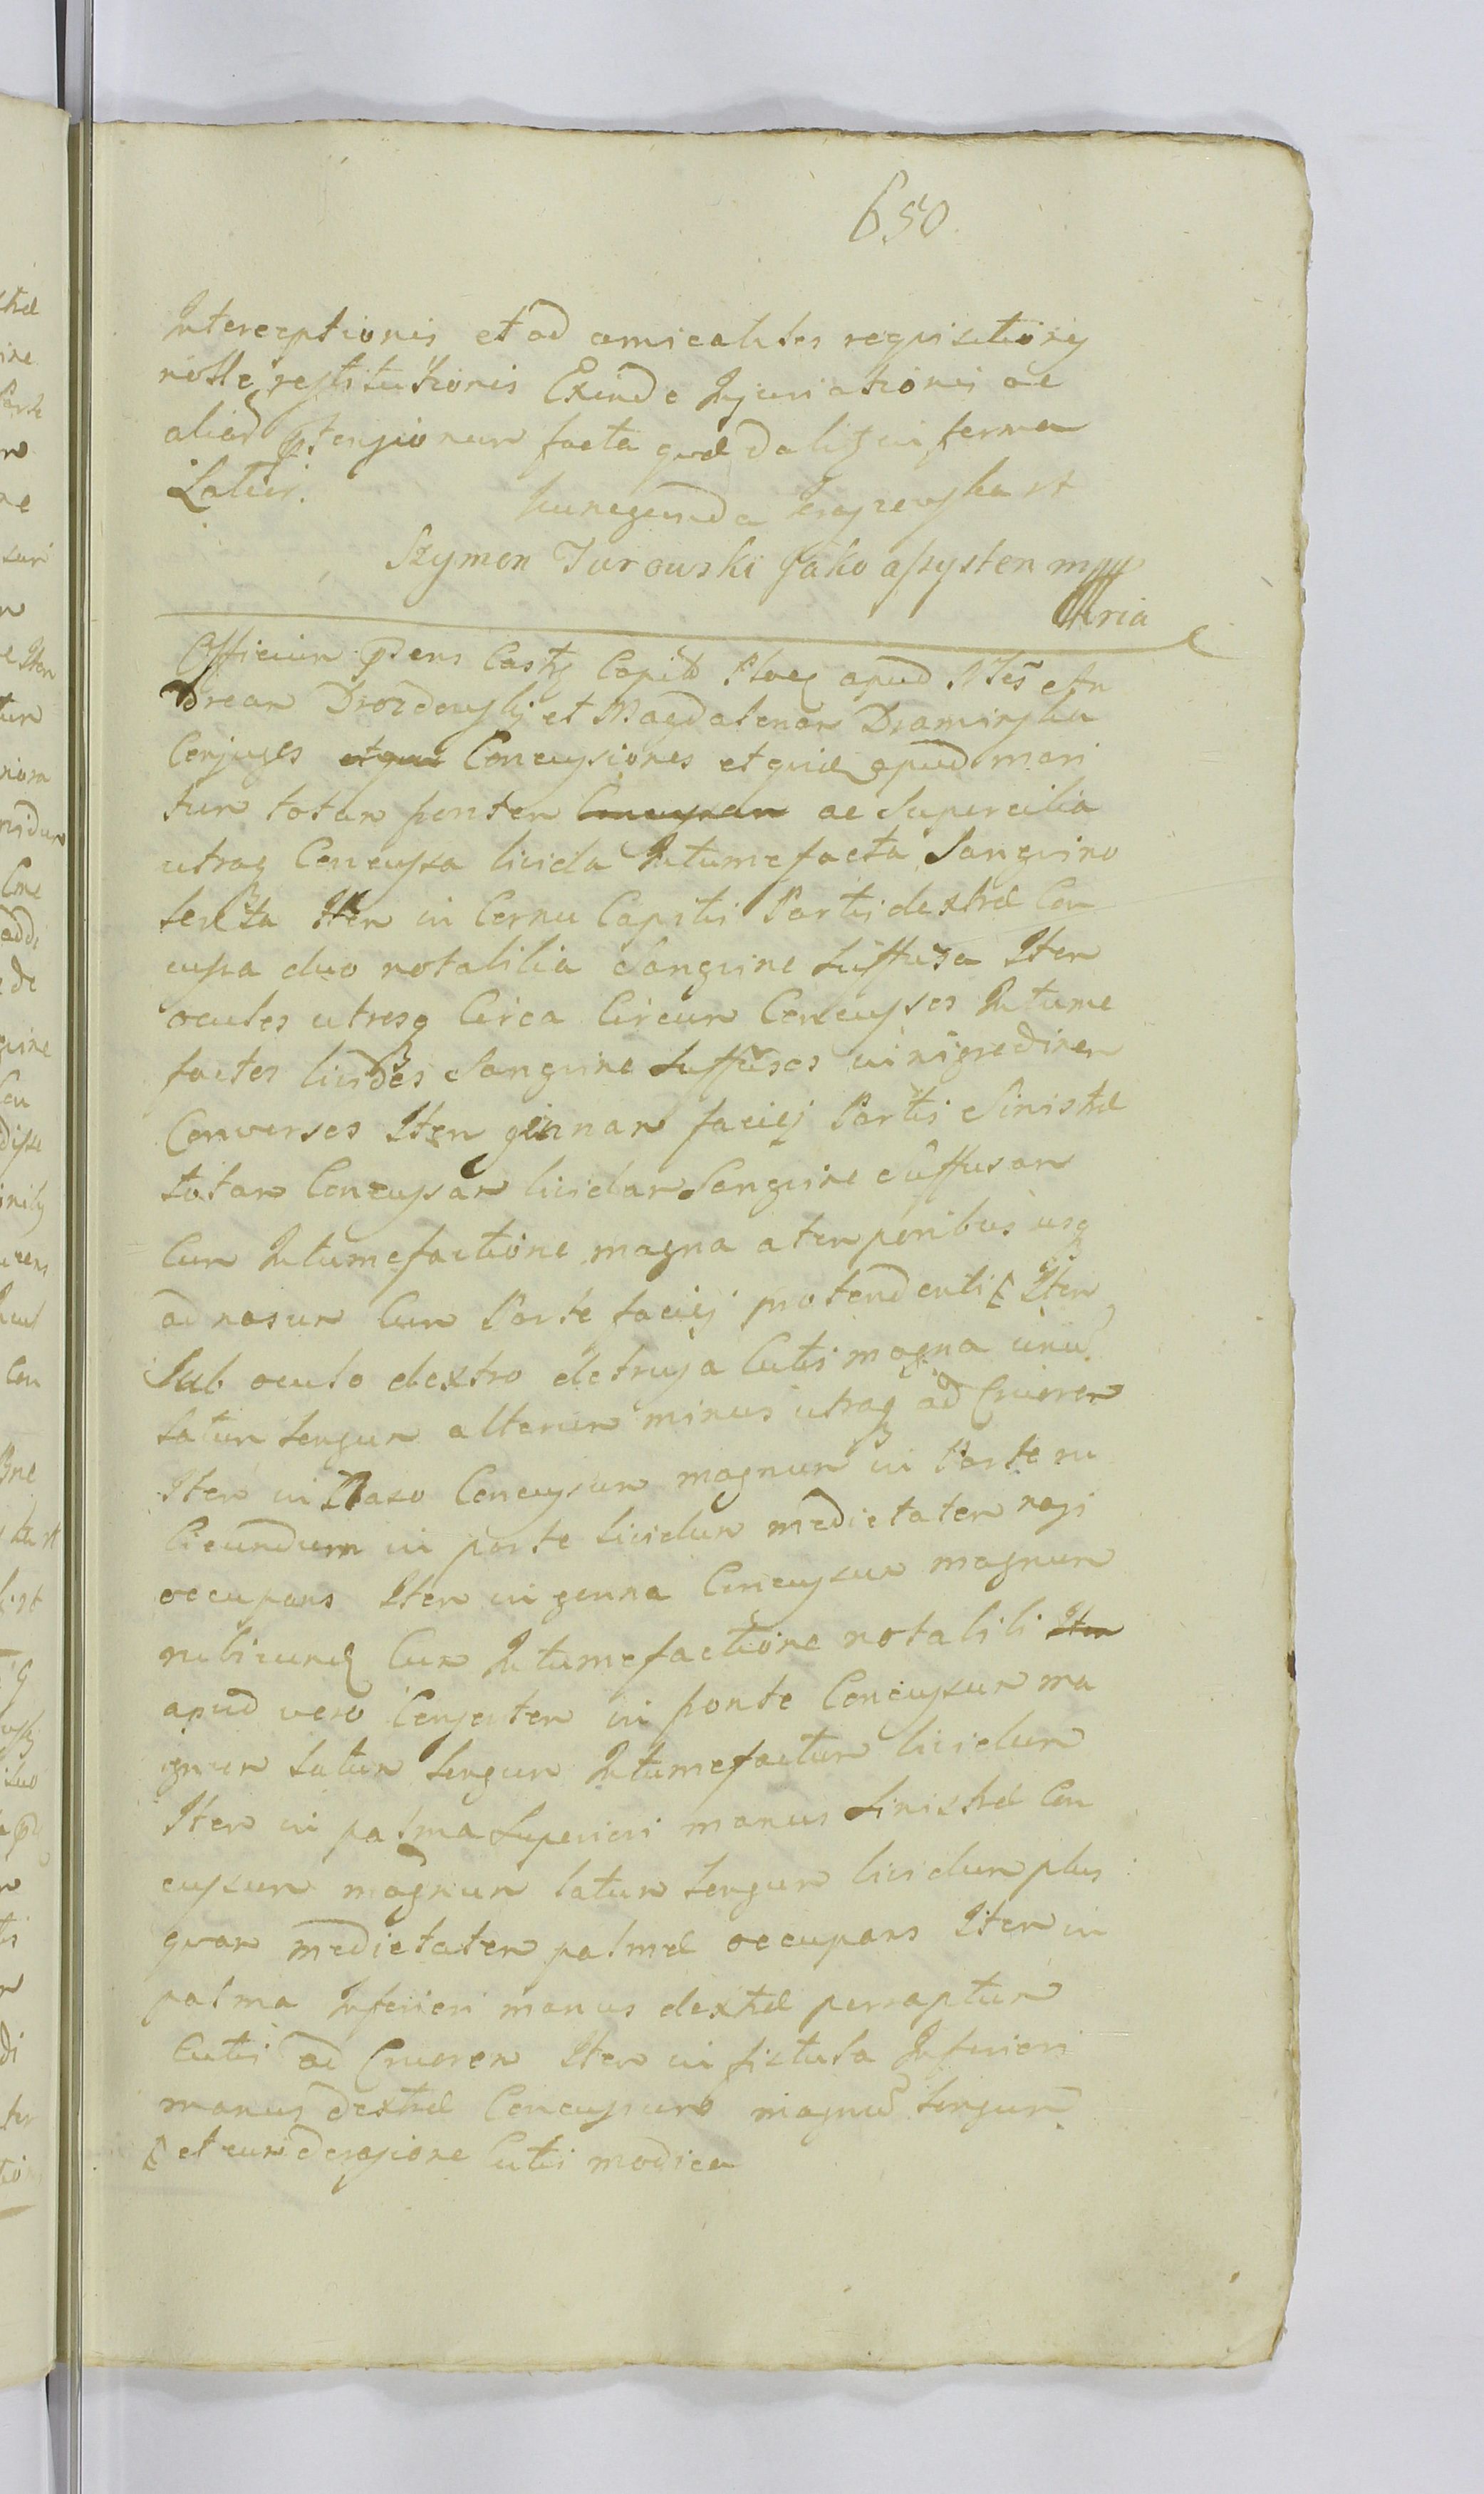 650
Interceptionis et ad amicabiles requisitiones
nolle restitutionis Exinde Injuriationis ac
aliar ptensionum facta quæ dalisz in forma
Latiss.
Kunegunda st
Szymon Turowski Jako assysten mpp
Officium pdens Castr Capit Ploc apud Nles An
dream Drozdowskj et Magdalenam Draminska
Conjuges et quæ Concussiones et quidem apud mari
tum totam frontem Concussam ac Supercilia
utraq Concussa livida Intumefacta Sanguino
lenta Item in Cornu Capitis Partis dextræ Con
cussa duo notabilia Sanguine Suffusa Item
oculos utrosq Circa Circum Concussos Intume
factos lividos Sanguine Suffusos in nigredinem
Conversos Item gennam faciej Partis Sinistræ
totam Concussam lividam Sanguine Suffusam
Cum Intumefactione magna a temporibus usq
ad nasum Cum Parte faciej protendenti Item
Sub oculo dextro detrusa Cutis magna unu
latum longum alterum minus utraq ad Cruorem
Item in Naso Concussum magnum in Parte ru
bicundum in parte lividum medietatem nasi
occupans Item in genna Concussum magnum
rubicund Cum Intumefactione notabili Item
apud vero Consortem in fronte Concussum ma
gnum latum longum Intumefactum lividum
Item in palma Superiori manus Sinistræ Con
cussum magnum latum longum lividum plus
quam medietatem palmæ occupans Item in
palma Inferiori manus dextræ perraptum
Cutis ad Cruorem Item in fistula Inferiori
manus dextræ Concussum magnu longum
et cum derasione Cutis modica